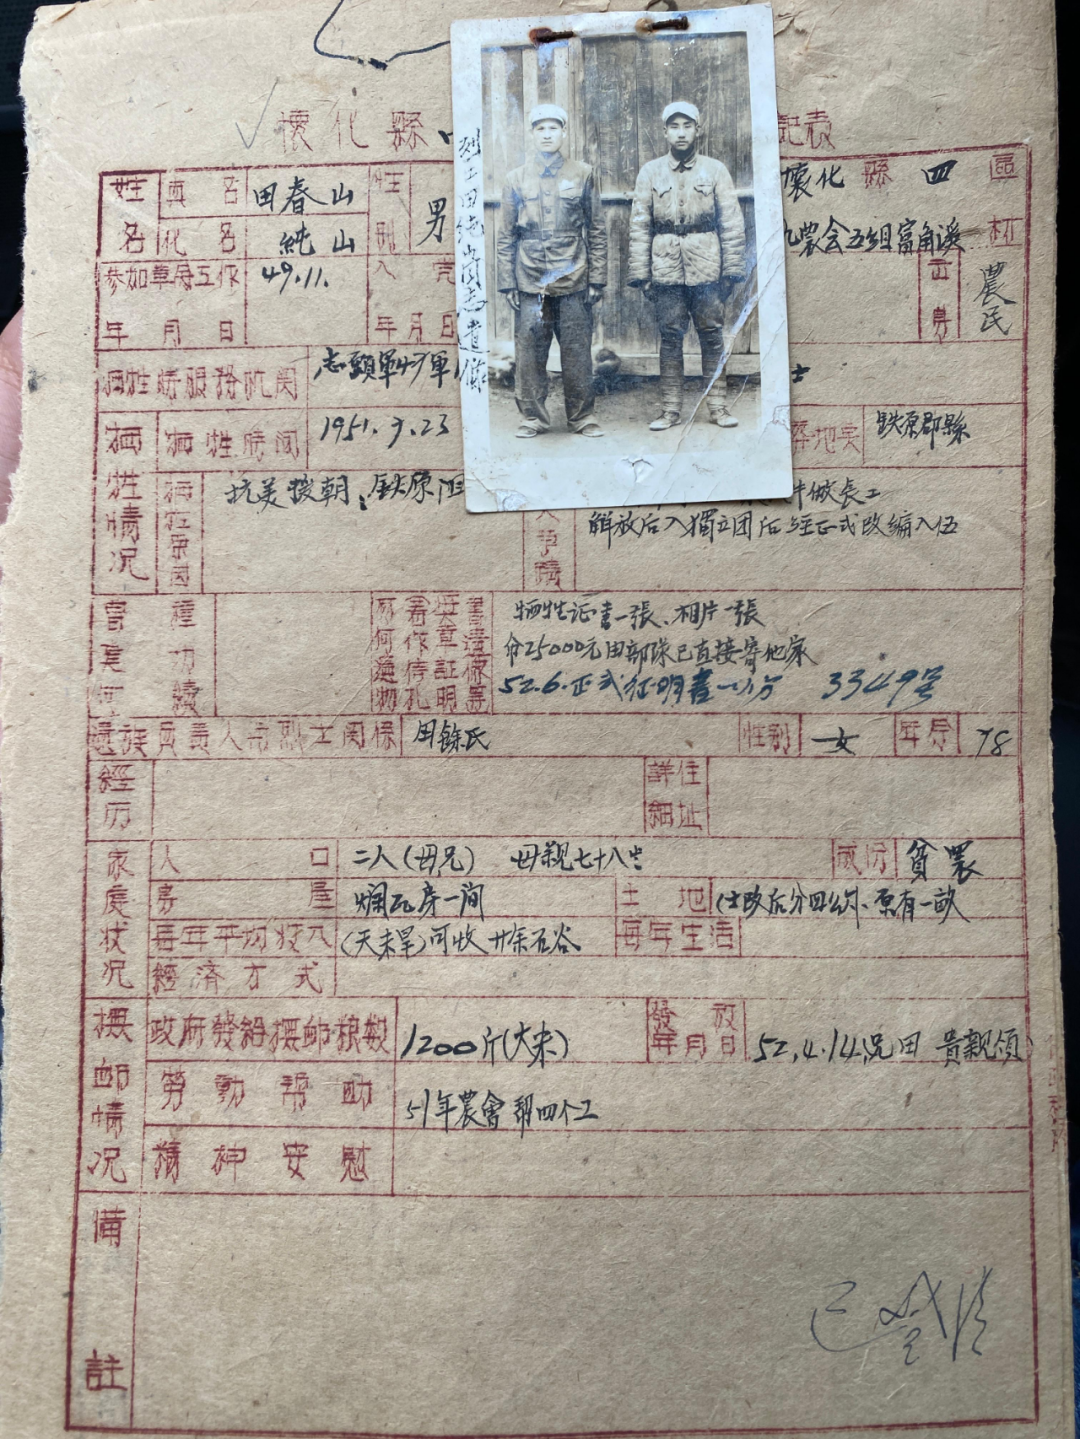 懷化縣
記表
烈士田純山同志遺像
姓名
真名 田春山
化名 純山
性別 男
懷化縣四區
九農会五組富角溪 村
参加革命工作 年月日 49.11.
入党 年月日
農民
牺牲時服務机関 志願軍47軍
士
牺牲情况
牺牲時间 1951.9.23
地点 鉄原郡縣
牺牲原因 抗美援朝、鉄原
做長工
解放后入獨立团后
正式改編入伍
牺牲证書一張、相片一張
分25000元由部隊已直接寄他家
52.6.正式证明書一份 3349号
遺族負責人与烈士関係 田餘氏
性別 女
年令 78
經历
詳细住址
家庭状况
人口 二人(母兄) 母親七十八岁
成份 貧農
房屋 爛瓦房一间
土地 (土改后分四公亩、原有一畝
每年平均收入 (天未旱)可收廿余石谷
每年生活
經済方式
撫卹情况
政府發給撫卹粮数 1200斤(大米)
發放年月日 52.4.14,兄田贵親領
勞動帮助 51年農會帮四个工
精神安慰
備註
已登